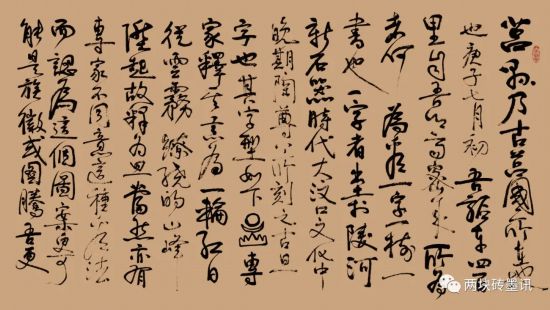 莒縣乃古莒國所在地
也庚子七月初吾車四百
里自高密來所為
何為看一字一樹一
書也一字者出土於陵河
新石器時代大汶口文化中
晚期陶尊上所刻之古旦
字也其字型如下專
家釋其意為一輪紅日
從雲霧繚繞的山峰
陞起故釋為旦當然亦有
專家不同意這種法
而認為這個圖案更可
能是族徽或圖騰吾更
两块砖墨讯